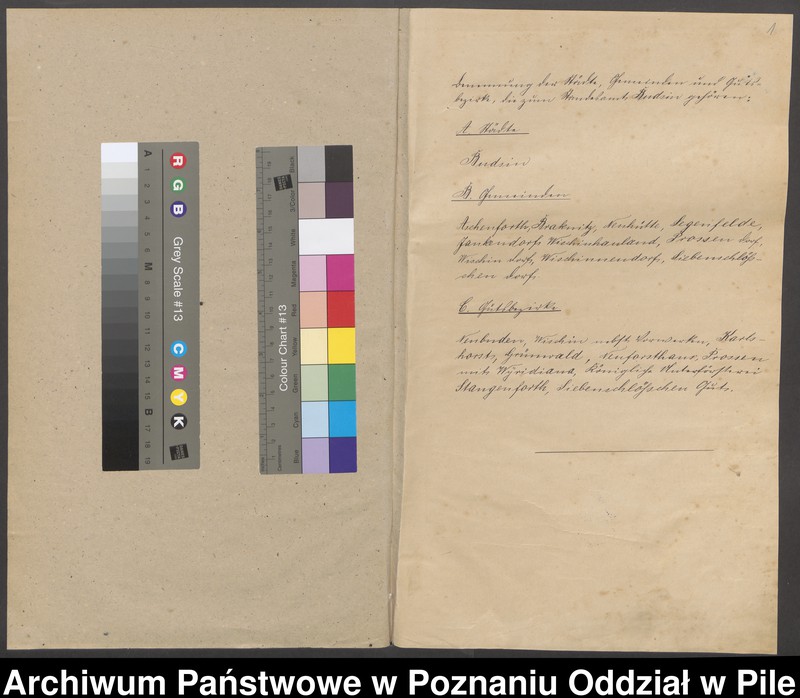 1
Benennung der Städte, Gemeinden und Guts-
bezirke, die zum Standesamt Budsin gehören:
A. Städte
Budsin
B. Gemeinden
Aschenforth, Braknitz, Neuhütte, Segenfelde,
Jankendorf, Wischinhauland, Prossen Dorf,
Wischin Dorf, Wischinneudorf, Siebenschlöß-
chen Dorf.
C. Gutsbezirke
Neubuden, Wischin nebst Vorwerken, Karls-
horst, Grünwald, Neuforsthaus, Prossen
mit Wyridiana, Königliche Unterförsterei
Stangenforth, Siebenschlößchen Gut.
A 1 2 3 4 5 6 M 8 9 10 11 12 13 14 15 B 17 18 19
R G B
Grey Scale #13
C M Y K
Colour Chart #13
Centimetres
Blue Cyan Green Yellow Red Magenta White 3/Color Black
Archiwum Państwowe w Poznaniu Oddział w Pile